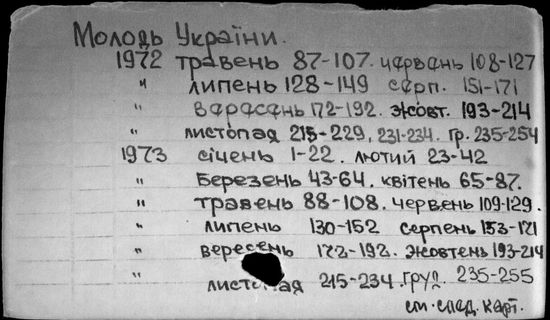 Молодь України.
1972 травень 87-107. червень 108-127
" липень 128-149 серп. 151-171
" вересень 172-192. жовт. 193-214
" листопад 215-229, 231-234. гр. 235-254
1973 січень 1-22. лютий 23-42
" Березень 43-64. квітень 65-87.
" травень 88-108. червень 109-129.
" липень 130-152 серпень 153-171
" вересень 172-192. жовтень 193-214
" листопад 215-234. груд. 235-255
см. след. карт.